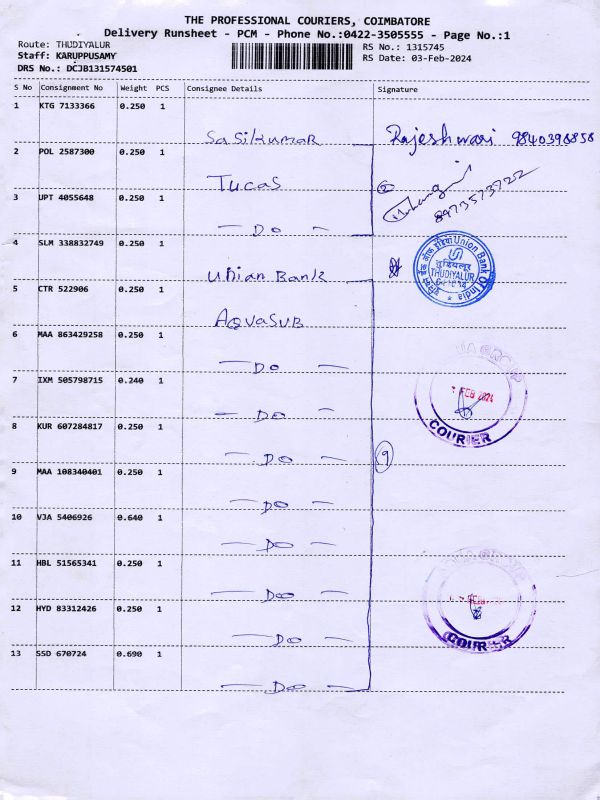 THE PROFESSIONAL COURIERS, COIMBATORE
Delivery Runsheet - PCM - Phone No.:0422-3505555 - Page No.:1
Route: THUDIYALUR RS No.: 1315745
Staff: KARUPPUSAMY RS Date: 03-Feb-2024
DRS No.: DCJB131574501
S No Consignment No Weight PCS Consignee Details Signature
1 KTG 7133366 0.250 1
Sasikumar Rajeshwari 9840398858
2 POL 2587300 0.250 1
Tucas ②
3 UPT 4055648 0.250 1 8973573722
— Do —
4 SLM 338832749 0.250 1
Union Bank
Union Bank Of India
THUDIYALUR
5 CTR 522906 0.250 1
AQUASUB
6 MAA 863429258 0.250 1
— Do —
7 IXM 505798715 0.240 1 FEB 2024
— Do —
COURIER
8 KUR 607284817 0.250 1
— Do — ⑨
9 MAA 108340401 0.250 1
— Do —
10 VJA 5406926 0.640 1
— Do —
11 HBL 51565341 0.250 1
— Do —
12 HYD 83312426 0.250 1
— Do — COURIER
13 SSD 670724 0.690 1
— Do —